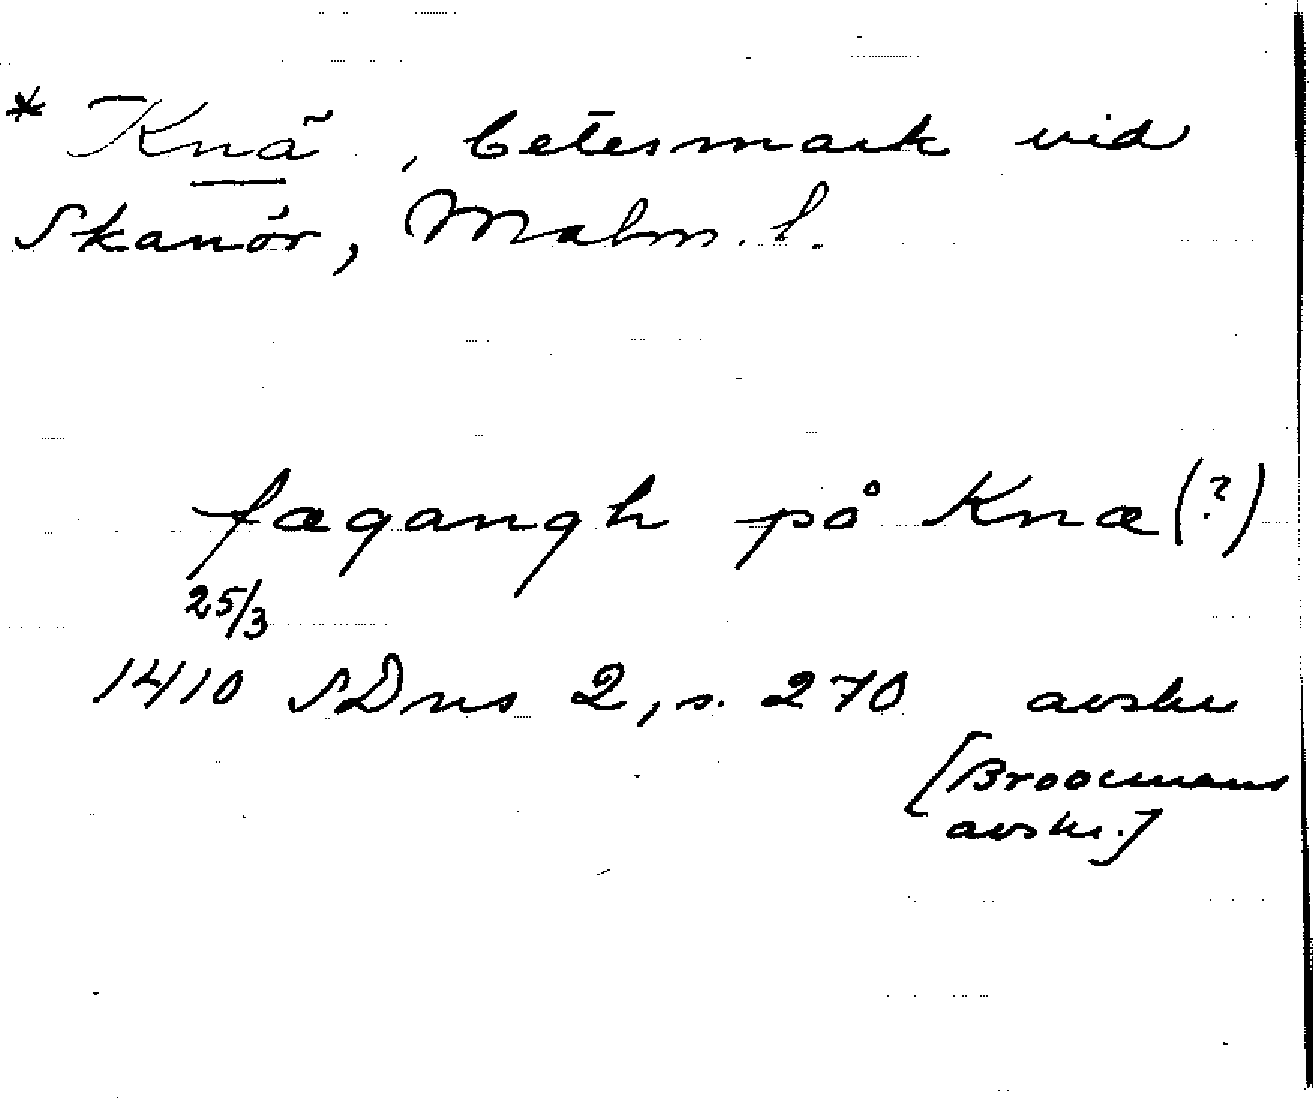 * Knä, betesmark vid
Skanör, Malm. l.
fægangh på Knæ (?)
25/3
1410 SDns 2, s. 270 avskr
[Broocmans
avskr.]